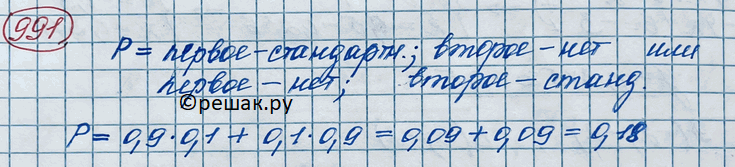 991.
P = первое – стандартн.; второе – нет или
первое – нет; второе – станд.
©решак.ру
P = 0,9 · 0,1 + 0,1 · 0,9 = 0,09 + 0,09 = 0,18